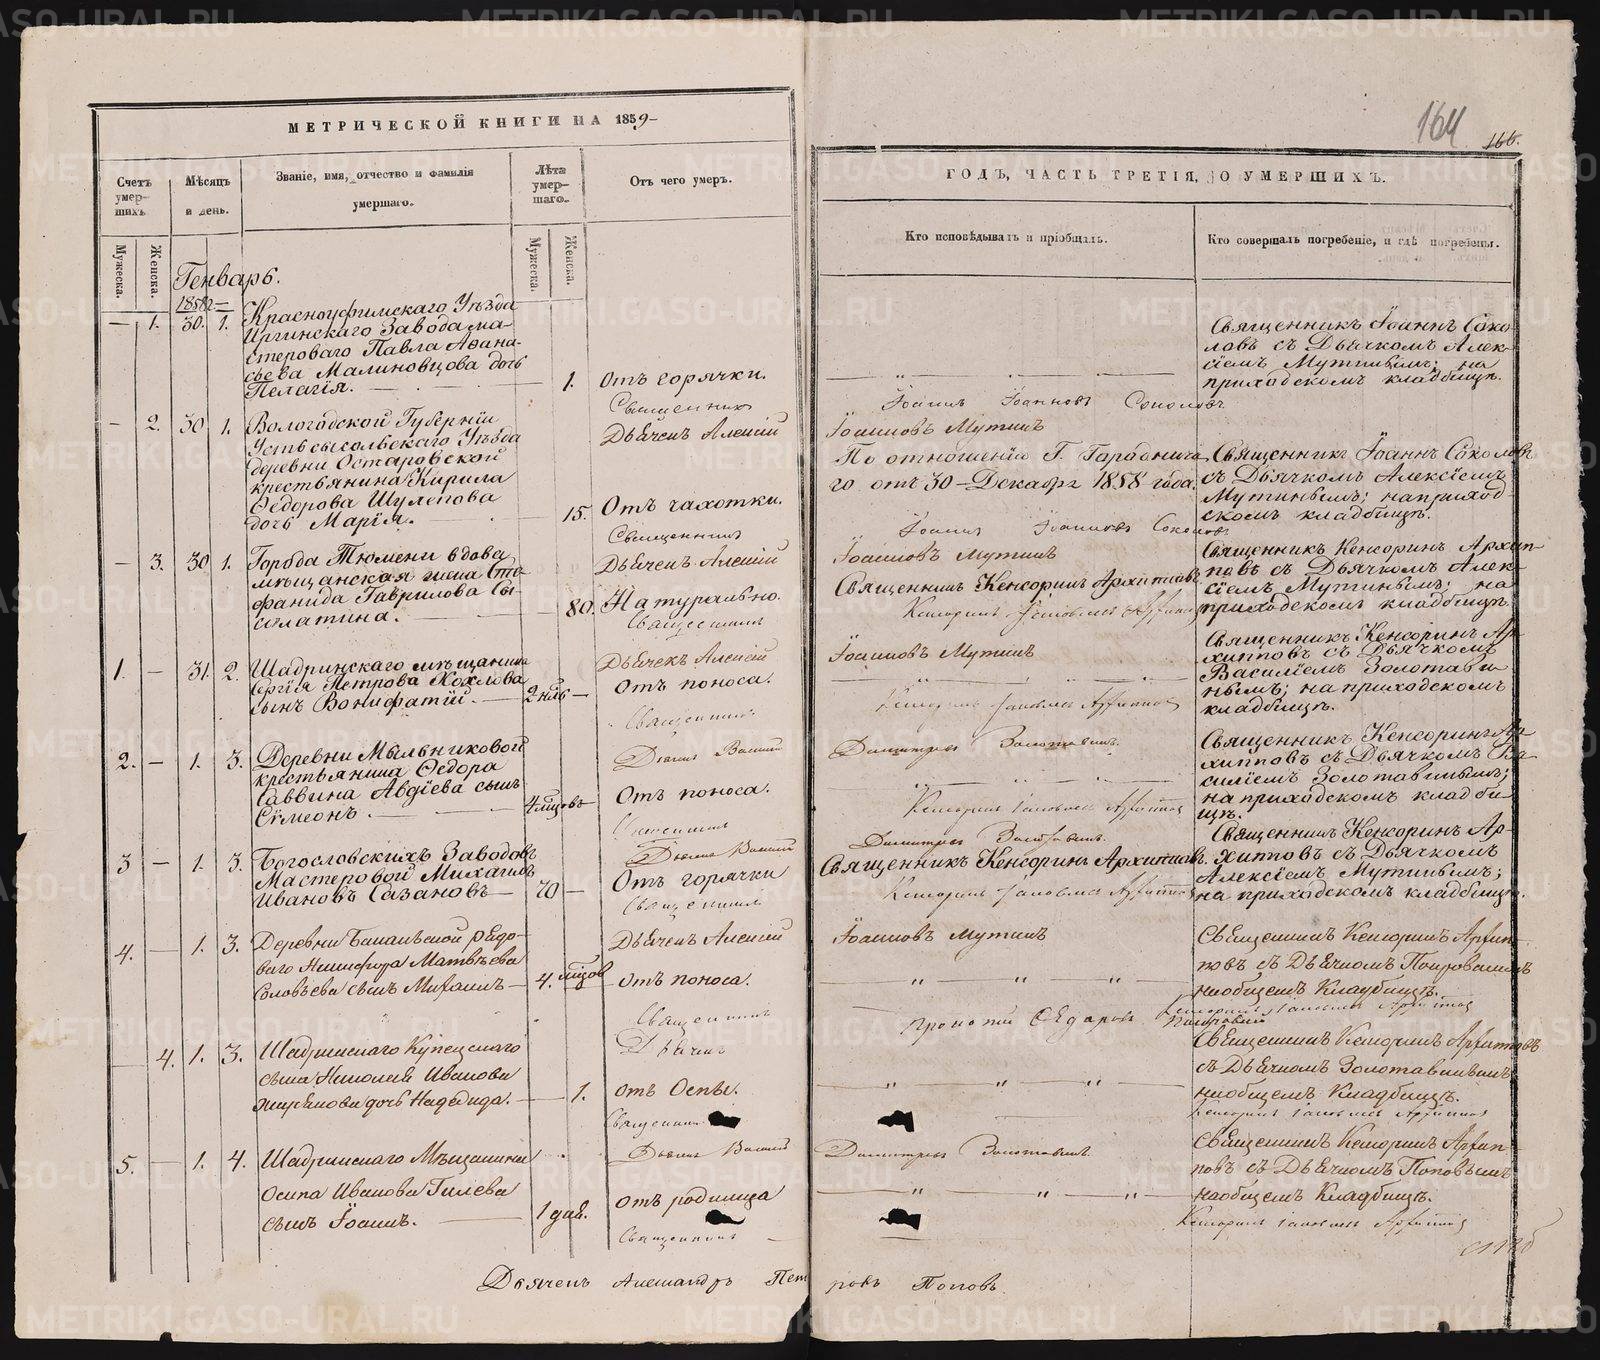 МЕТРИЧЕСКОЙ КНИГИ НА 1859-
Счетъ умер-шихъ.
Мѣсяцъ и день.
Званіе, имя, отчество и фамилія умершаго.
Лѣта умер-шаго.
Отъ чего умеръ.
Мужеска.
Женска.
Мужеска.
Женска.
Генварь.
1858
— 1. 30. 1. Красноуфимскаго Уѣзда
Иргинскаго Завода ма-
стероваго Павла Афана-
сьева Малиновцова дочь
Пелагія. — 1. Отъ горячки.
Священникъ
— 2. 30 1. Вологодской Губерніи
Дьячекъ Алексій
Устьсысольскаго Уѣзда
деревни Остаровской
крестьянина Кирила
Ѳедорова Шулепова
дочь Марія. — 15. Отъ чахотки.
Священникъ
— 3. 30 1. Города Тюмени вдова
Дьячекъ Алексій
мѣщанская жена Сте-
фанида Гаврилова Сы-
солатина. — 80. Натурально.
Священникъ
1. — 31. 2. Шадринскаго мѣщанина
Дьячекъ Алексій
Сергія Петрова Хохлова
сынъ Вонифатій. — 2 нѣд — Отъ поноса.
Священникъ
2. — 1. 3. Деревни Мыльниковой
Дьячекъ Василій
крестьянина Ѳедора
Саввина Авдіева сынъ
Сѵмеонъ. — 4 мѣсцовъ Отъ поноса.
Священникъ
3 — 1. 3. Богословскихъ Заводовъ
Дьячекъ Василій
Мастеровой Михаилъ
Ивановъ Сазановъ — 70 — Отъ горячки
Священникъ
4. — 1. 3. Деревни рядо-
Дьячекъ Алексій
ваго Никифора Матвѣева
Соловьева сынъ Михаилъ — 4. мѣсцов Отъ поноса.
Священникъ
Дьячекъ
4. 1. 3. Шадринскаго Купецкаго
сына Николая Иванова
дочь Надежда. — 1. отъ Оспы.
Священникъ
5. — 1. 4. Шадринскаго Мѣщанина
Дьячекъ Василій
Осипа Иванова Гилева
сынъ Іоаннъ. — 1 дня. отъ родимца
Священникъ
Дьячекъ Александръ Петровъ Поповъ.
164
166.
ГОДЪ, ЧАСТЬ ТРЕТІЯ, О УМЕРШИХЪ.
Кто исповѣдывалъ и пріобщалъ.
Кто совершалъ погребеніе, и гдѣ погребены.
Священникъ Іоаннъ Соко-
ловъ съ Дьячкомъ Алек-
сіемъ Мутинымъ; на
приходскомъ кладбищѣ.
Іоаннъ Іоанновъ Соколовъ
Іоанновъ Мутинъ
По отношенію Г. Городнича-
го отъ 30 – Декабр 1858 года.
Священникъ Іоаннъ Соколовъ
съ Дьячкомъ Алексіемъ
Мутинымъ; на приход-
скомъ кладбищѣ.
Іоаннъ Іоанновъ Соколовъ
Іоанновъ Мутинъ
Священникъ Кенсоринъ Архиповъ.
Священникъ Кенсоринъ Архип-
повъ съ Дьячкомъ Алек-
сіемъ Мутинымъ; на
приходскомъ кладбищѣ.
Іоанновъ Мутинъ
Священникъ Кенсоринъ Ар-
хипповъ съ Дьячкомъ
Василіемъ Золотави-
нымъ; на приходскомъ
кладбищѣ.
Димитріевъ Золотавинъ.
Священникъ Кенсоринъ Ар-
хипповъ съ Дьячкомъ Ва-
силіемъ Золотавинымъ;
на приходскомъ кладби-
щѣ.
Димитріевъ Золотавинъ.
Священникъ Кенсоринъ Архиповъ.
Священникъ Кенсоринъ Ар-
хипповъ съ Дьячкомъ
Алексіемъ Мутинымъ;
на приходскомъ кладбищѣ.
Іоанновъ Мутинъ
Священникъ Кенсоринъ Архип-
повъ съ Дьячкомъ Покровскимъ
на общемъ Кладбищѣ.
Покровскій
Священникъ Кенсоринъ Архиповъ
съ Дьячкомъ Золотавинымъ
на общемъ Кладбищѣ.
Димитріевъ Золотавинъ
Священникъ Кенсоринъ Архип-
повъ съ Дьячкомъ Поповымъ
на общемъ Кладбищѣ.
METRIKI.GASO-URAL.RU